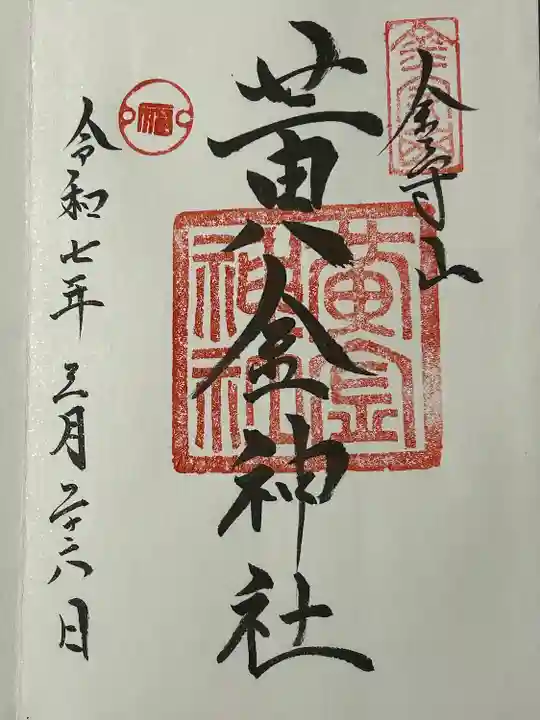 金華山
黄金神社
黄金神社
令和七年三月二十六日